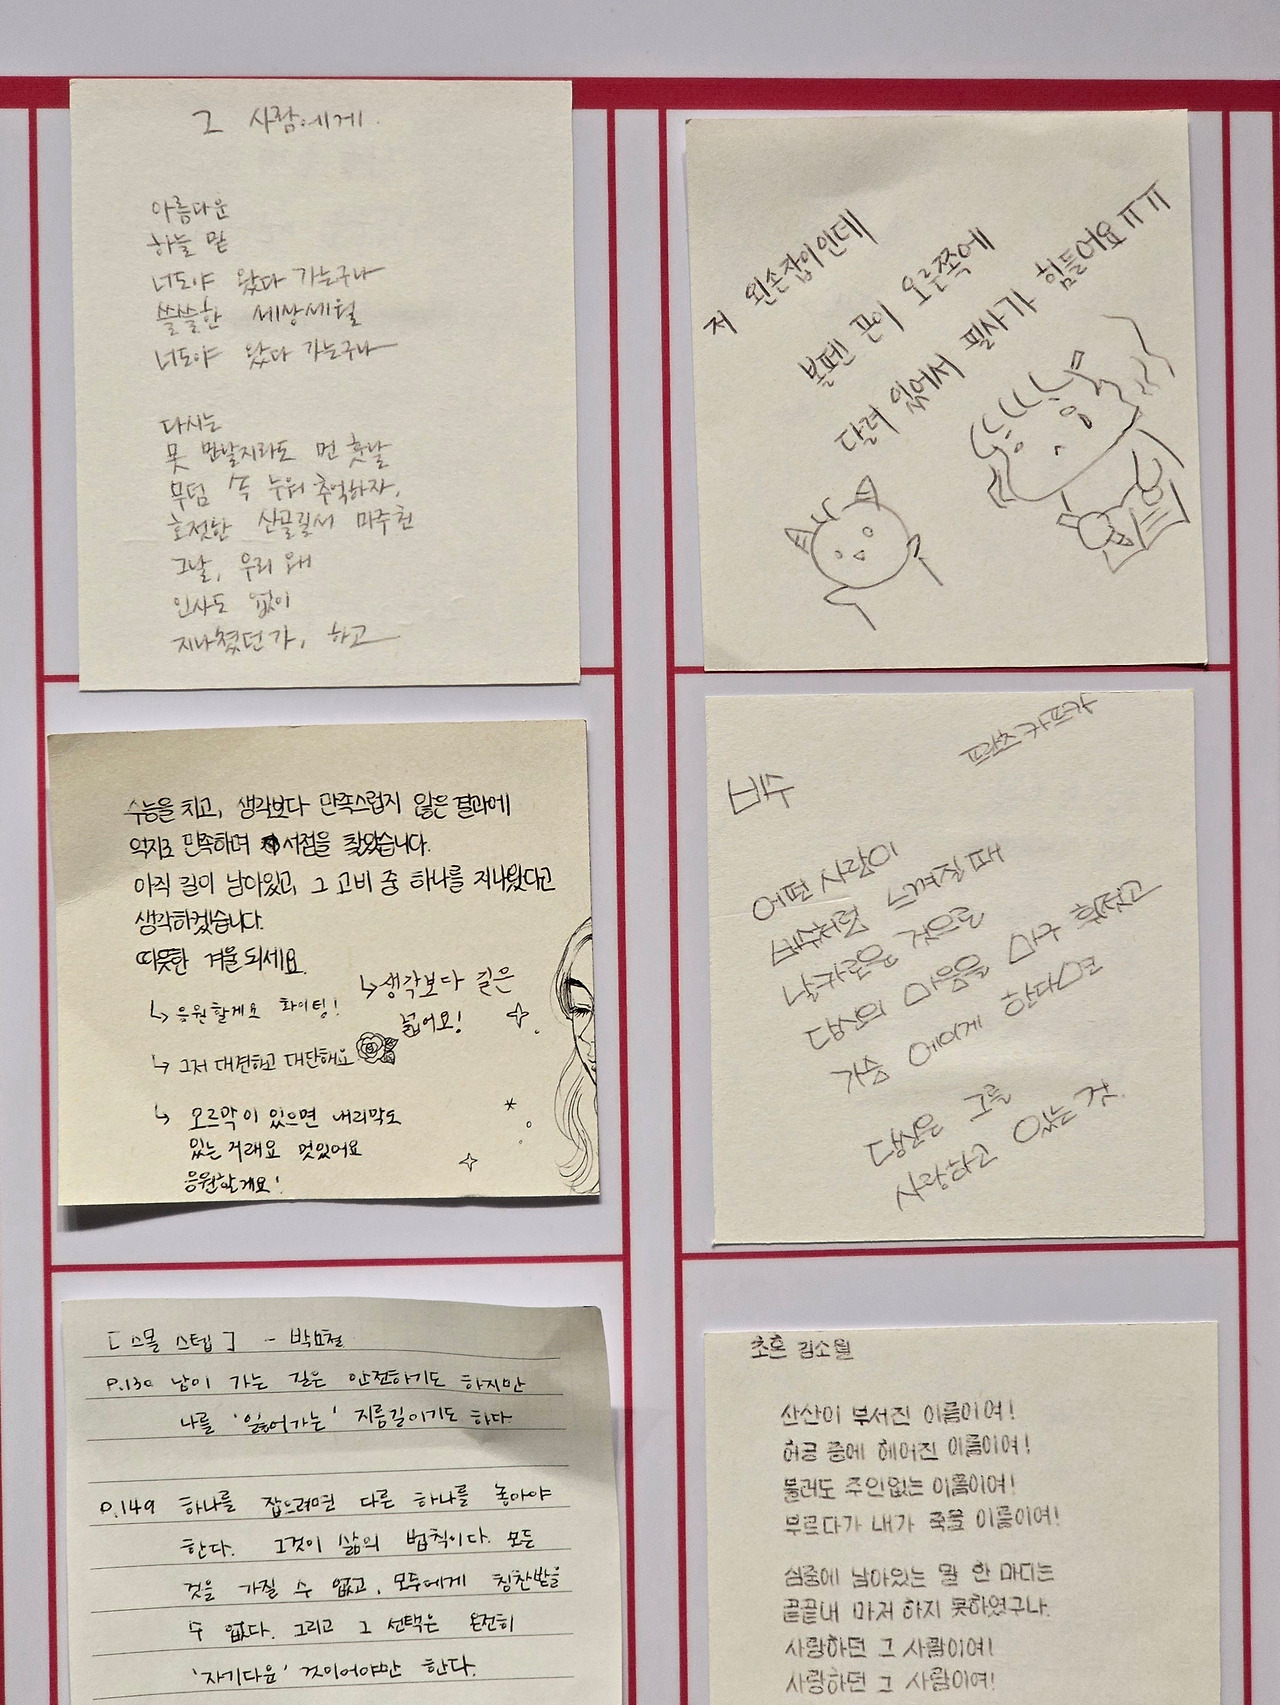 그 사람에게
아름다운
하늘 밑
너도야 왔다 가는구나
쓸쓸한 세상세월
너도야 왔다 가는구나
다시는
못 만날지라도 먼 훗날
무덤 속 누워 추억하자,
호젓한 산골길서 마주친
그날, 우리 왜
인사도 없이
지나쳤던가, 하고
저 왼손잡이인데
볼펜 끈이 오른쪽에
달려 있어서 필사가 힘들어요ㅠㅠ
수능을 치고, 생각보다 만족스럽지 않은 결과에
억지로 만족하며 서점을 찾았습니다.
아직 길이 남아있고, 그 고비 중 하나를 지나왔다고
생각하겠습니다.
따뜻한 겨울 되세요.
↳생각보다 길은
넓어요!
↳ 응원할게요 화이팅!
↳ 그저 대견하고 대단해요
↳ 오르막이 있으면 내리막도
있는 거래요 멋있어요
응원할게요!
프란츠 카프카
어떤 사람이
느껴질 때
날카로운 것으로
당신의 마음을 마구 휘젓고
가슴 에이게 한다면
당신은 그를
사랑하고 있는 것.
[스몰 스텝] - 박요철
P.130 남이 가는 길은 안전하기도 하지만
나를 '잃어가는' 지름길이기도 하다
P.149 하나를 잡으려면 다른 하나를 놓아야
한다. 그것이 삶의 법칙이다. 모든
것을 가질 수 없고, 모두에게 칭찬받을
수 없다. 그리고 그 선택은 온전히
'자기다운' 것이어야만 한다.
초혼 김소월
산산이 부서진 이름이여!
허공 중에 헤어진 이름이여!
불러도 주인없는 이름이여!
부르다가 내가 죽을 이름이여!
심중에 남아있는 말 한 마디는
끝끝내 마저 하지 못하였구나.
사랑하던 그 사람이여!
사랑하던 그 사람이여!